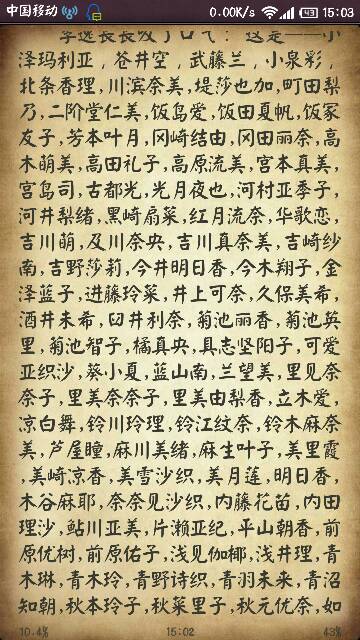 中国移动 0.00K/s 43 15:03
李逸长长吸了口气：“这是——小
泽玛利亚，苍井空，武藤兰，小泉彩，
北条香理，川滨奈美，堤莎也加，町田梨
乃，二阶堂仁美，饭岛爱，饭田夏帆，饭冢
友子，芳本叶月，冈崎结由，冈田丽奈，高
木萌美，高田礼子，高原流美，宫本真美，
宫岛司，古都光，光月夜也，河村亚季子，
河井梨绪，黑崎扇菜，红月流奈，华歌恋，
吉川萌，及川奈央，吉川真奈美，吉崎纱
南，吉野莎莉，今井明日香，今木翔子，金
泽蓝子，进藤玲菜，井上可奈，久保美希，
酒井未希，臼井利奈，菊池丽香，菊池英
里，菊池智子，橘真央，具志坚阳子，可爱
亚织沙，葵小夏，蓝山南，兰望美，里见奈
奈子，里美奈奈子，里美由梨香，立木爱，
凉白舞，铃川玲理，铃江纹奈，铃木麻奈
美，芦屋瞳，麻川美绪，麻生叶子，美里霞
，美崎凉香，美雪沙织，美月莲，明日香，
木谷麻耶，奈奈见沙织，内藤花苗，内田
理沙，鲇川亚美，片濑亚纪，平山朝香，前
原优树，前原佑子，浅见伽椰，浅井理，青
木琳，青木玲，青野诗织，青羽未来，青沼
知朝，秋本玲子，秋菜里子，秋元优奈，如
10.4% 15:02 43%